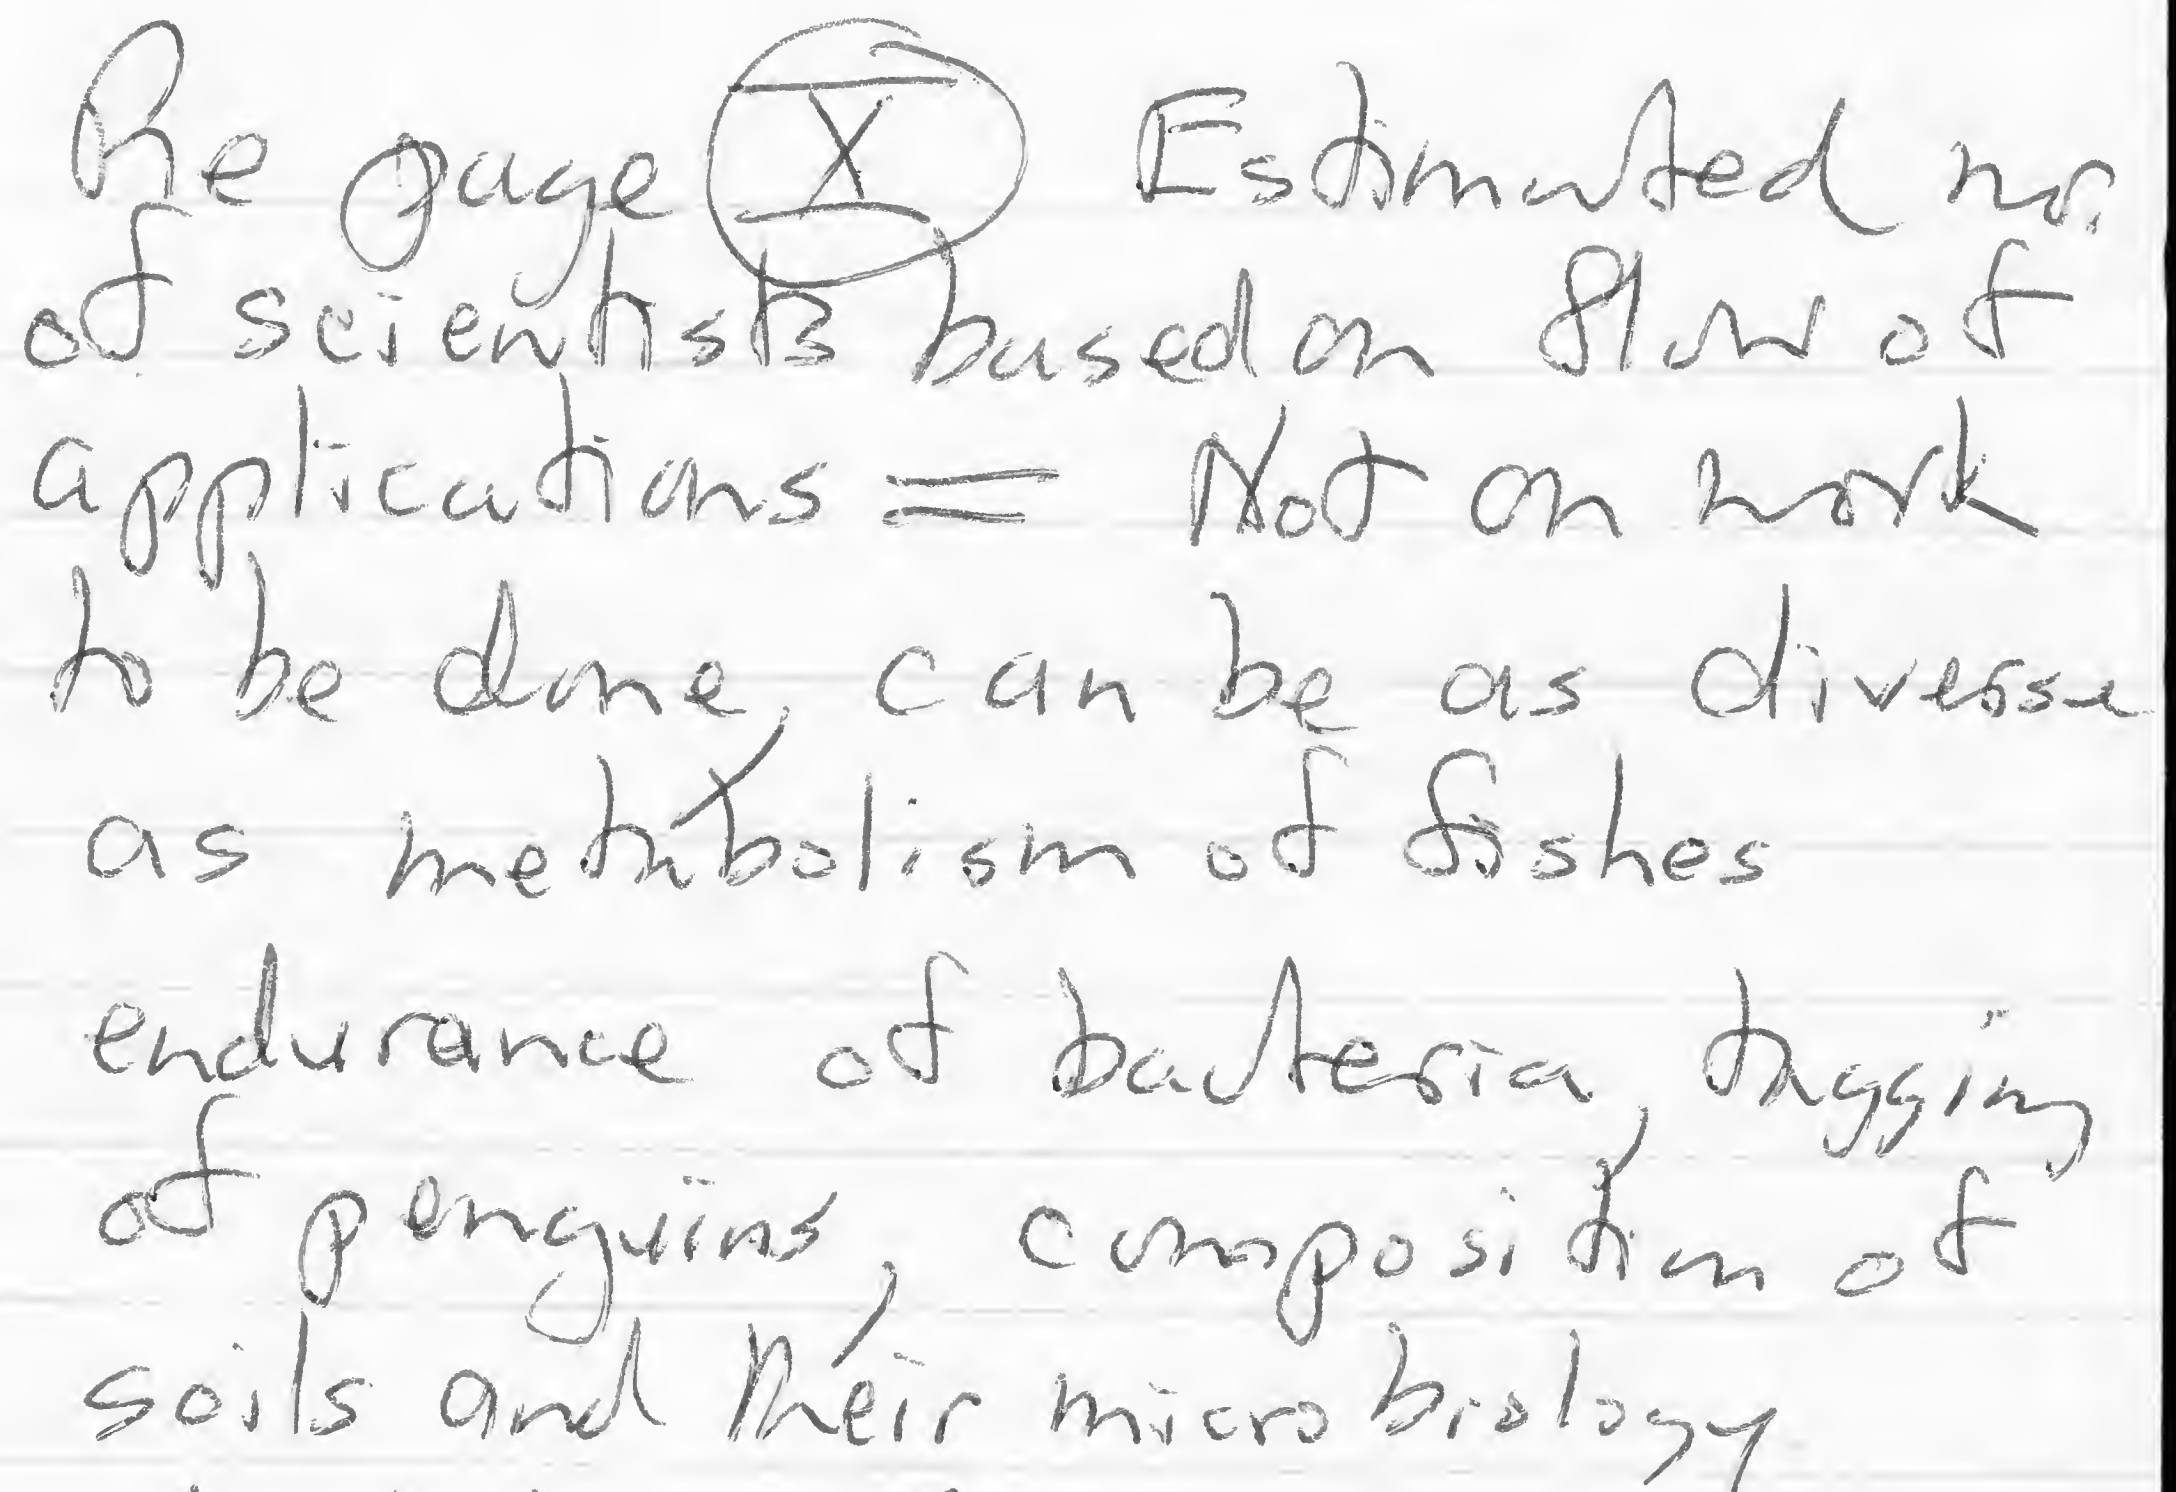 Re page X Estimated no.
of scientists based on flow of
applications = Not on work
to be done, can be as diverse
as metabolism of fishes
endurance of bacteria, tagging
of penguins, composition of
soils and their microbiology